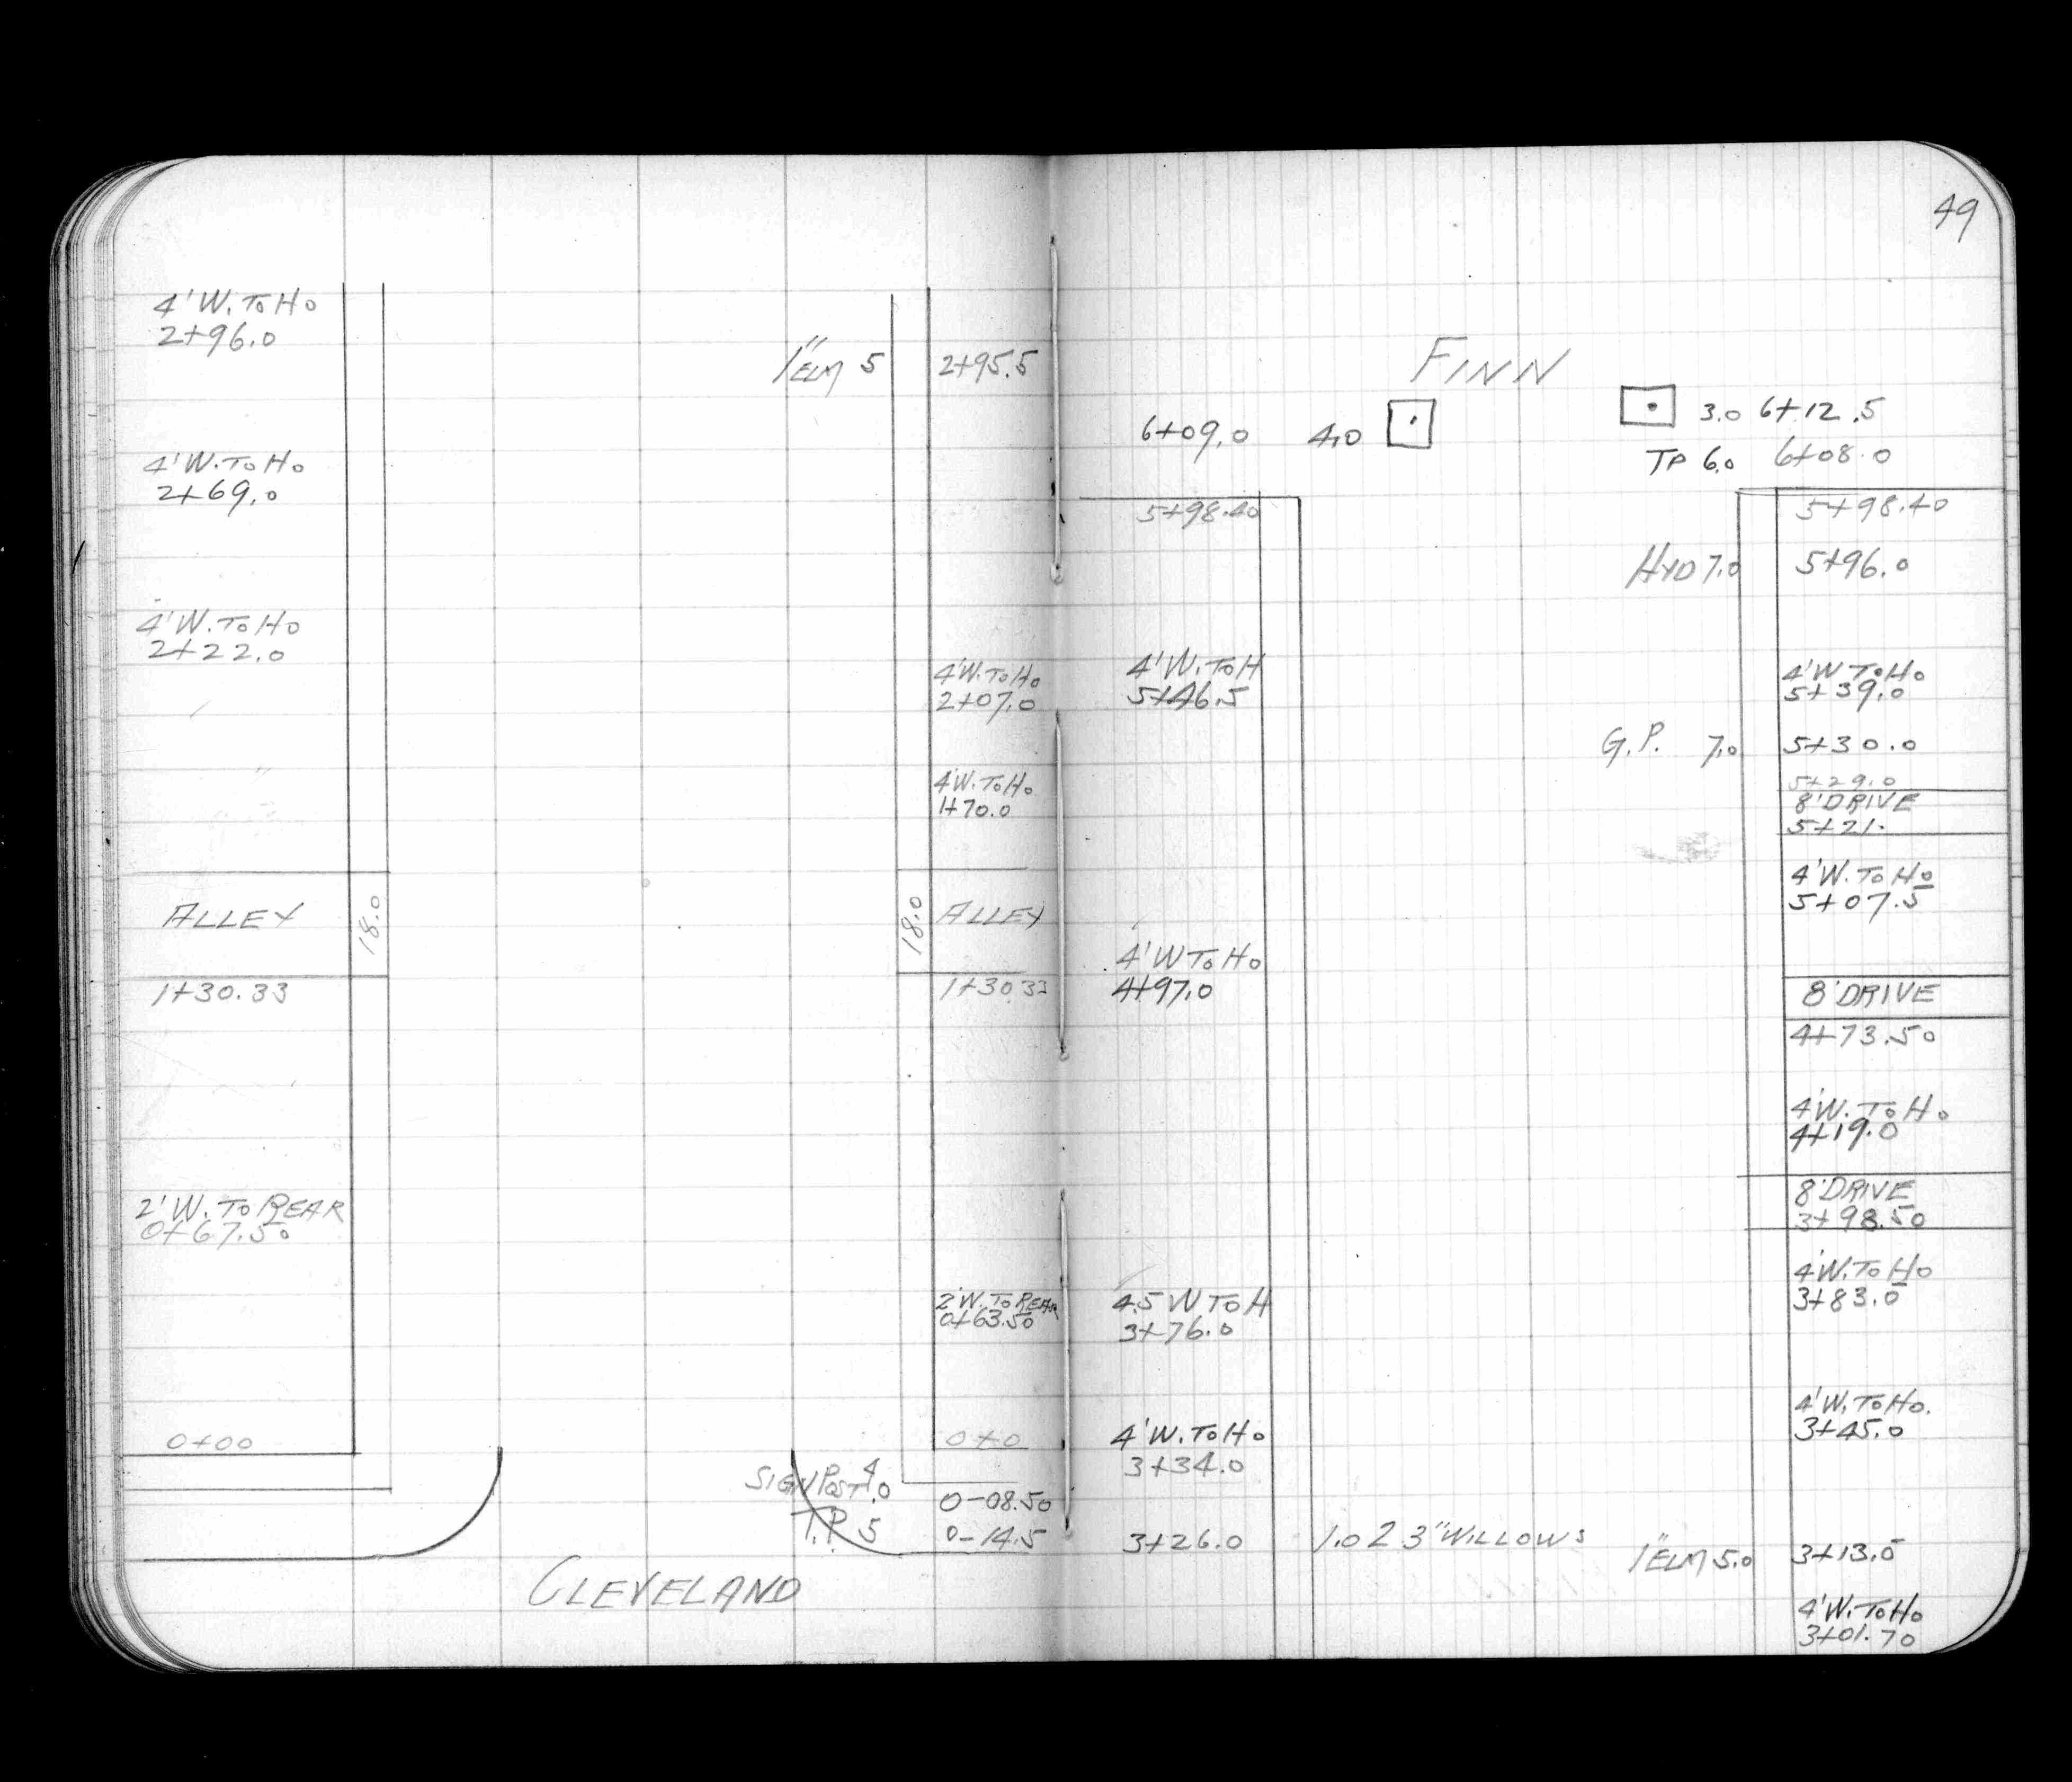 4' W. To Ho
2+96.0
1" ELM 5
2+95.5
4' W. To Ho
2+69.0
4' W. To Ho
2+22.0
4' W. To Ho
2+07.0
4' W. To Ho
1+70.0
ALLEY
18.0
18.0
ALLEY
1+30.33
1+30.33
2' W. To REAR
0+67.50
2' W. To REAR
0+63.50
0+00
0+0
SIGN POST 4.0
0-08.50
T.P. 5
0-14.5
CLEVELAND
49
FINN
6+09.0 4.0
3.0 6+12.5
TP 6.0 6+08.0
5+98.40
5+98.40
HYD 7.0 5+96.0
4' W. To H
5+46.5
4' W To Ho
5+39.0
G.P. 7.0 5+30.0
5+29.0
8' DRIVE
5+21.
4' W. To Ho
5+07.5
4' W To Ho
4+97.0
8' DRIVE
4+73.50
4' W. To Ho
4+19.0
8' DRIVE
3+98.50
4' W. To Ho
3+83.0
4.5 W To H
3+76.0
4' W. To Ho.
3+45.0
4' W. To Ho
3+34.0
3+26.0 1.0 2 3" WILLOWS
1" ELM 5.0 3+13.0
4' W. To Ho
3+01.70